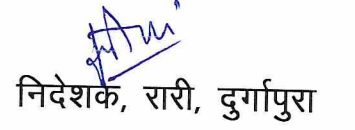 निदेशक, रारी, दुर्गापुरा